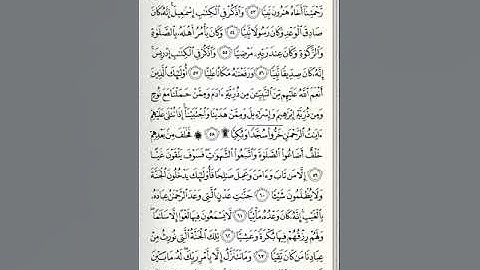 رَّحْمَتِنَا أَخَاهُ هَٰرُونَ نَبِيًّا ٥٣ وَاذْكُرْ فِي الْكِتَٰبِ إِسْمَٰعِيلَ إِنَّهُ كَانَ
صَادِقَ الْوَعْدِ وَكَانَ رَسُولًا نَّبِيًّا ٥٤ وَكَانَ يَأْمُرُ أَهْلَهُ بِالصَّلَوٰةِ
وَالزَّكَوٰةِ وَكَانَ عِندَ رَبِّهِ مَرْضِيًّا ٥٥ وَاذْكُرْ فِي الْكِتَٰبِ إِدْرِيسَ
إِنَّهُ كَانَ صِدِّيقًا نَّبِيًّا ٥٦ وَرَفَعْنَٰهُ مَكَانًا عَلِيًّا ٥٧ أُولَٰئِكَ الَّذِينَ
أَنْعَمَ اللَّهُ عَلَيْهِم مِّنَ النَّبِيِّينَ مِن ذُرِّيَّةِ ءَادَمَ وَمِمَّنْ حَمَلْنَا مَعَ نُوحٍ
وَمِن ذُرِّيَّةِ إِبْرَٰهِيمَ وَإِسْرَٰءِيلَ وَمِمَّنْ هَدَيْنَا وَاجْتَبَيْنَا إِذَا تُتْلَىٰ عَلَيْهِمْ
ءَايَٰتُ الرَّحْمَٰنِ خَرُّوا سُجَّدًا وَبُكِيًّا ۩ ٥٨ ۞ فَخَلَفَ مِن بَعْدِهِمْ
خَلْفٌ أَضَاعُوا الصَّلَوٰةَ وَاتَّبَعُوا الشَّهَوَٰتِ فَسَوْفَ يَلْقَوْنَ غَيًّا
٥٩ إِلَّا مَن تَابَ وَءَامَنَ وَعَمِلَ صَٰلِحًا فَأُولَٰئِكَ يَدْخُلُونَ الْجَنَّةَ
وَلَا يُظْلَمُونَ شَيْـًٔا ٦٠ جَنَّٰتِ عَدْنٍ الَّتِي وَعَدَ الرَّحْمَٰنُ عِبَادَهُ
بِالْغَيْبِ إِنَّهُ كَانَ وَعْدُهُ مَأْتِيًّا ٦١ لَّا يَسْمَعُونَ فِيهَا لَغْوًا إِلَّا سَلَٰمًا
وَلَهُمْ رِزْقُهُمْ فِيهَا بُكْرَةً وَعَشِيًّا ٦٢ تِلْكَ الْجَنَّةُ الَّتِي نُورِثُ مِنْ
عِبَادِنَا مَن كَانَ تَقِيًّا ٦٣ وَمَا نَتَنَزَّلُ إِلَّا بِأَمْرِ رَبِّكَ لَهُ مَا بَيْنَ